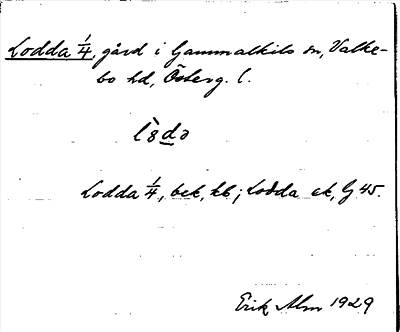 Lodda 1/4, gård i Gammalkils sn, Valke-
bo hd, Österg. l.
Lodda 1/4, bek, kb; Lodda ek, G 45.
Erik Alm 1929